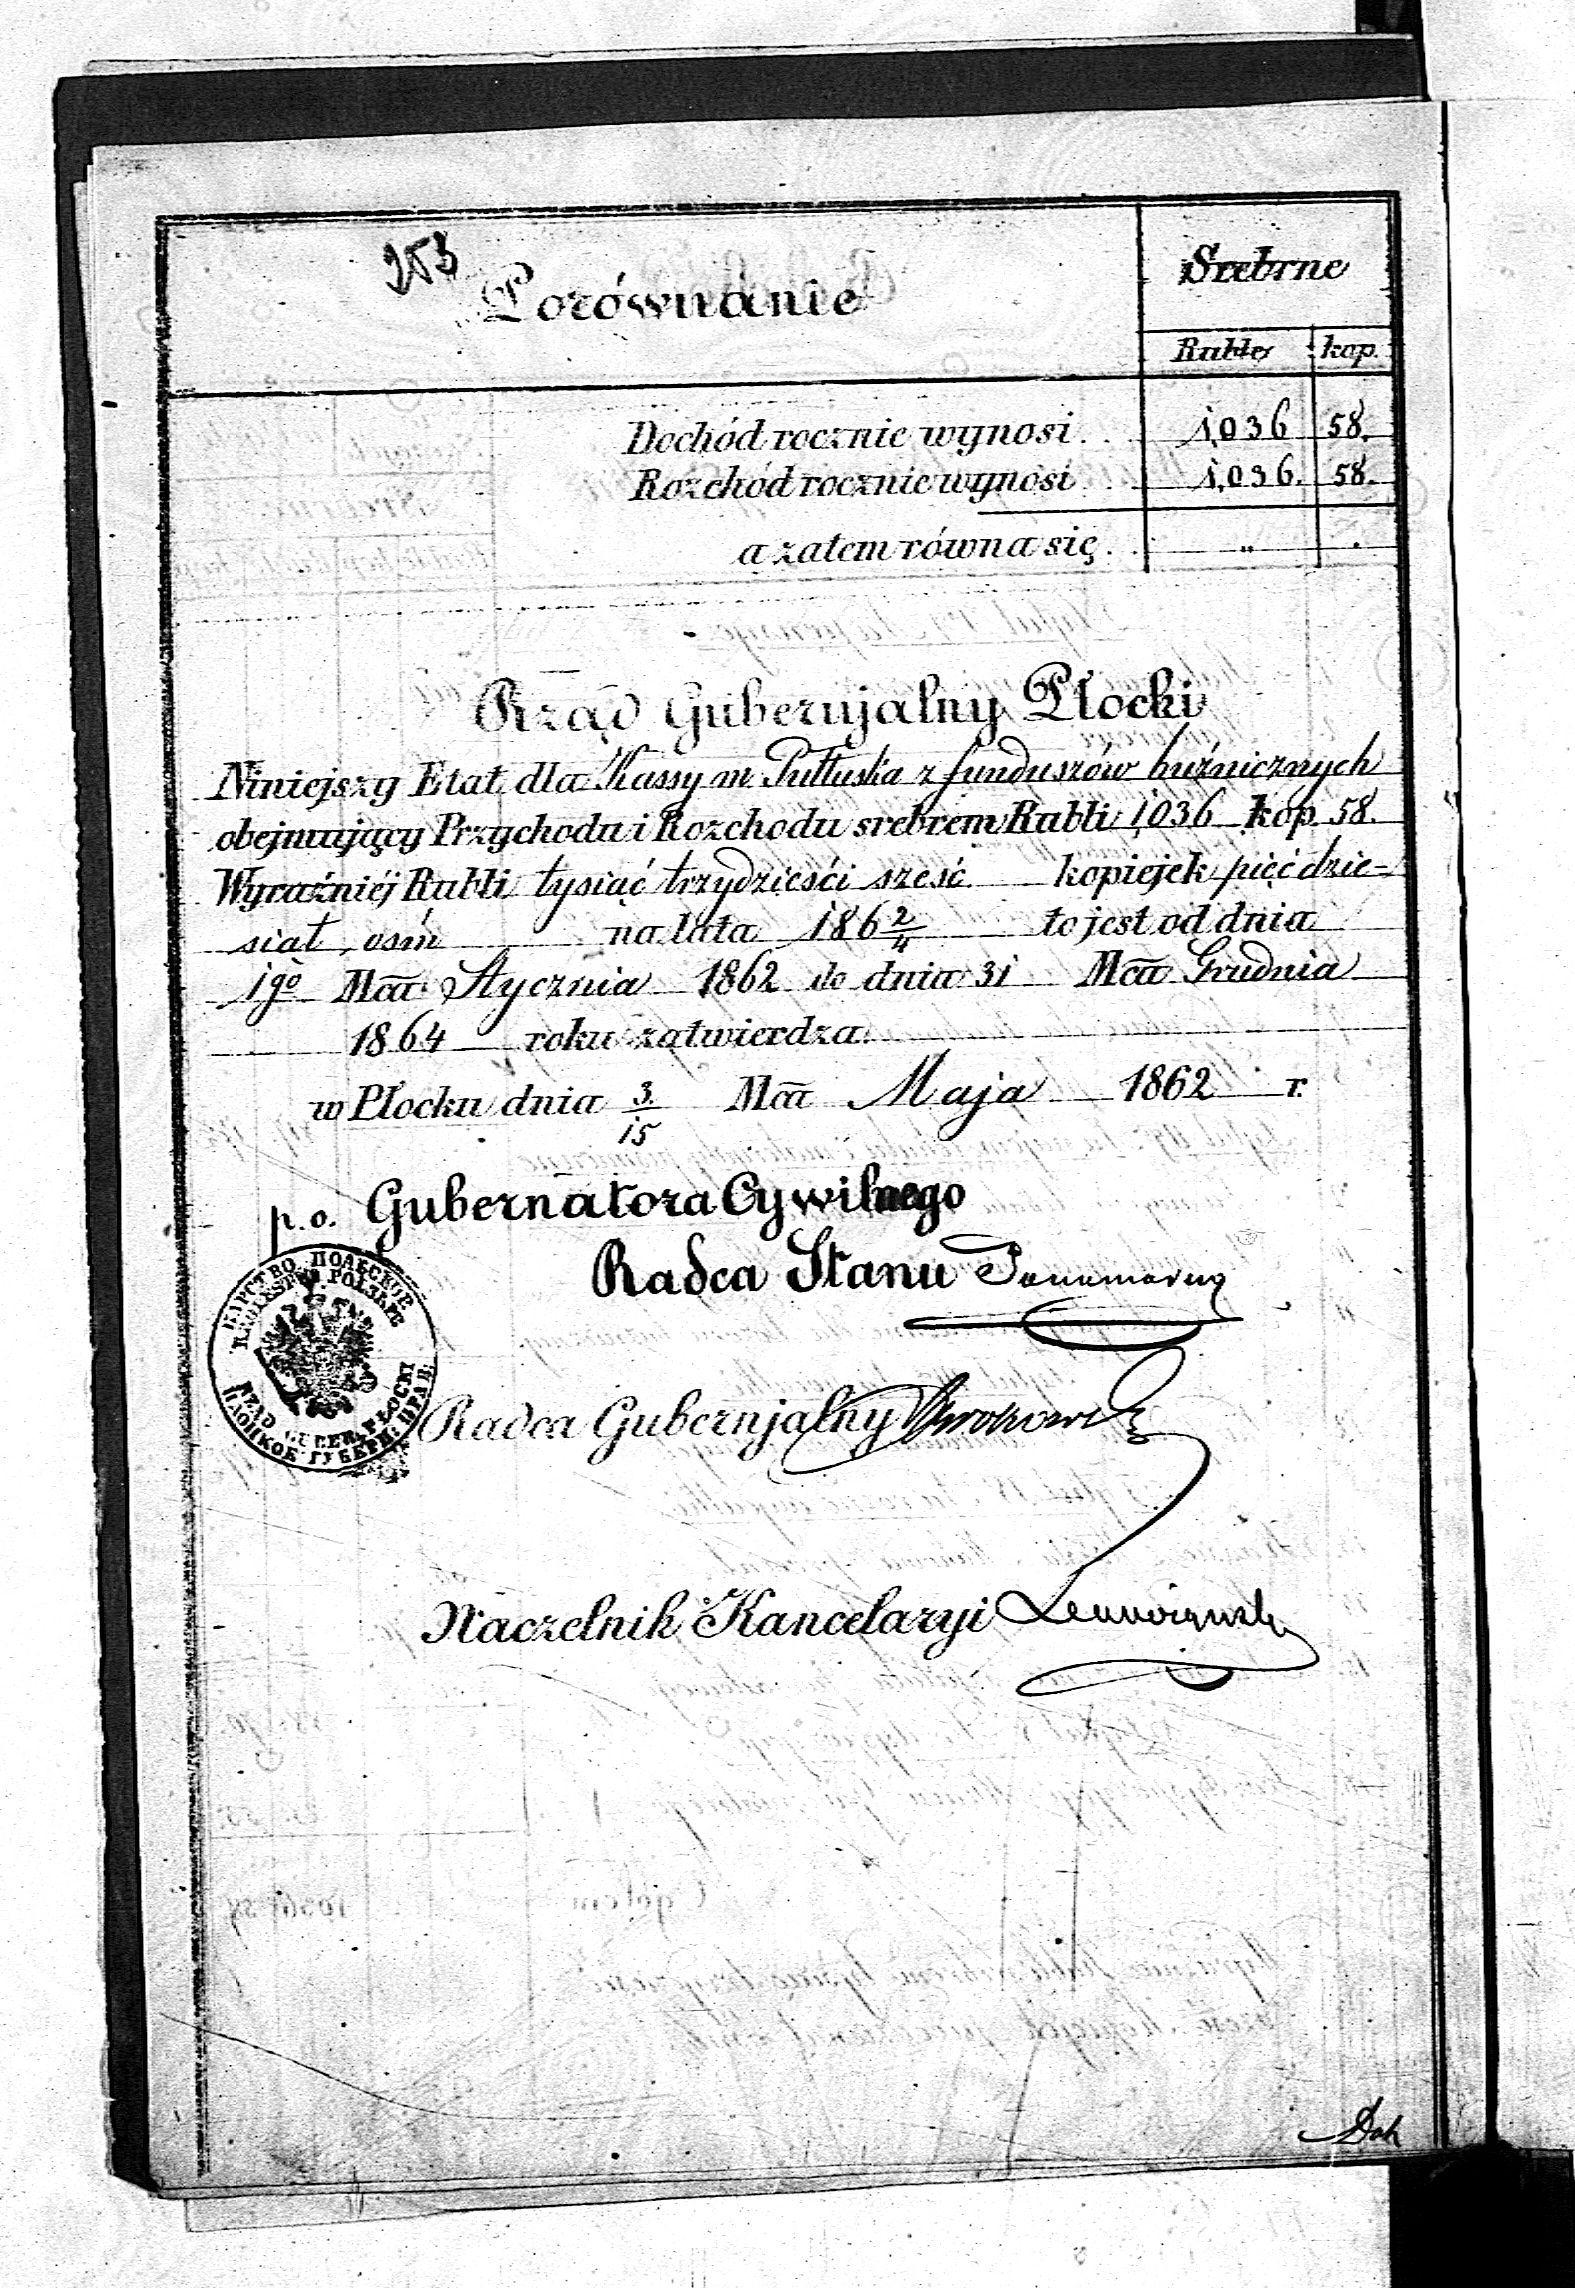 253
Porównanie
Srebrne
Ruble kop.
Dochód rocznie wynosi . . 1,036 58.
Rozchód rocznie wynosi . . 1,036. 58.
a zatem równa się . . „ .
Rząd Gubernjalny Płocki
Niniejszy Etat dla Kassy m. Pułtuska z funduszów bużnicznych
obejmujący Przychodu i Rozchodu srebrem Rubli 1,036 kop. 58.
Wyraźniéj Rubli tysiąc trzydzieści sześć kopiejek pięćdzie-
siąt ośm na lata 186 2/4 to jest od dnia
1go Mca Stycznia 1862 do dnia 31 Mca Grudnia
1864 roku zatwierdza.
w Płocku dnia 3/15 Mca Maja 1862 r.
p.o. Gubernatora Cywilnego
Radca Stanu
ЦАРСТВО ПОЛЬСКОЕ
KRÓLESTWO POLSKIE
RZĄD GUBER. PŁOCKI
ПЛОЦКОЕ ГУБЕРН. ПРАВ.
Radca Gubernjalny
Naczelnik Kancelaryi
Dok